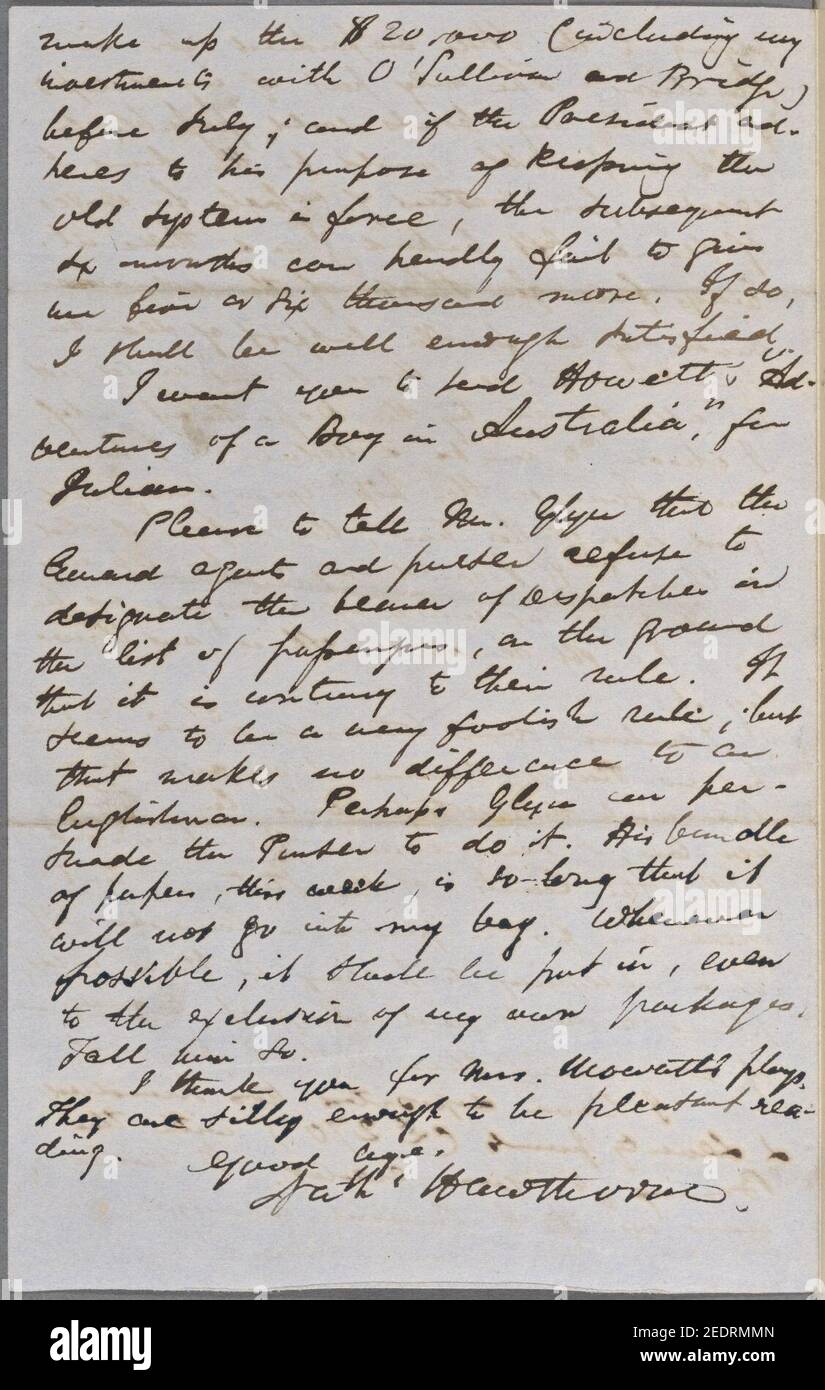 make up the $20,000 (including my
investments with O'Sullivan and Bridge)
before July; and if the President ad-
heres to his purpose of keeping the
old system in force, the subsequent
six months can hardly fail to give
me five or six thousand more. If so,
I shall be well enough satisfied.
I want you to send Howitt's "Ad-
ventures of a Boy in Australia," for
Julian.
Please to tell Mr. Glyn that the
Cunard agents and purser refuse to
designate the bearer of despatches in
the list of passengers, on the ground
that it is contrary to their rule. It
seems to be a very foolish rule; but
that makes no difference to an
Englishman. Perhaps Glyn can per-
suade the Purser to do it. His bundle
of papers, this week, is so long that it
will not go into my bag. Whenever
possible, it shall be put in, even
to the exclusion of my own packages.
Tell him so.
I thank you for Mrs. Mowatt's plays.
They are silly enough to be pleasant rea-
ding.
Good
Nath' Hawthorne.
alamy
Image ID: 2EDRMMN
www.alamy.com